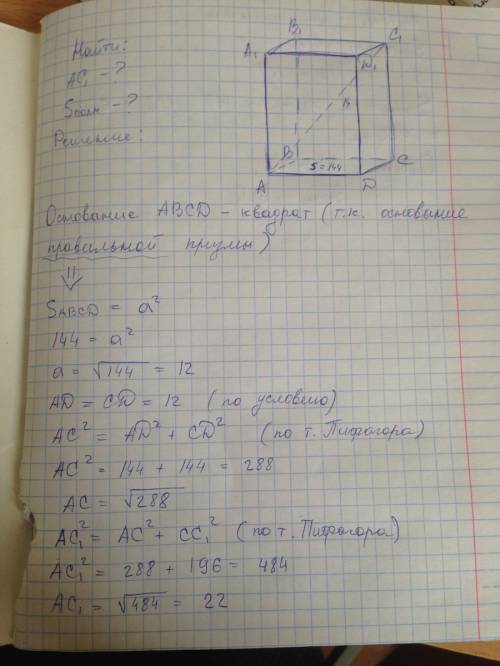 Найти:
AC₁ - ?
Sполн - ?
Решение:
B₁
C₁
A₁
D₁
B
C
S=144
A
D
Основание ABCD - квадрат (т.к. основание
правильной призмы)
⇓
SABCD = a²
144 = a²
a = √144 = 12
AD = CD = 12 (по условию)
AC² = AD² + CD² (по т. Пифагора)
AC² = 144 + 144 = 288
AC = √288
AC₁² = AC² + CC₁² (по т. Пифагора)
AC₁² = 288 + 196 = 484
AC₁ = √484 = 22